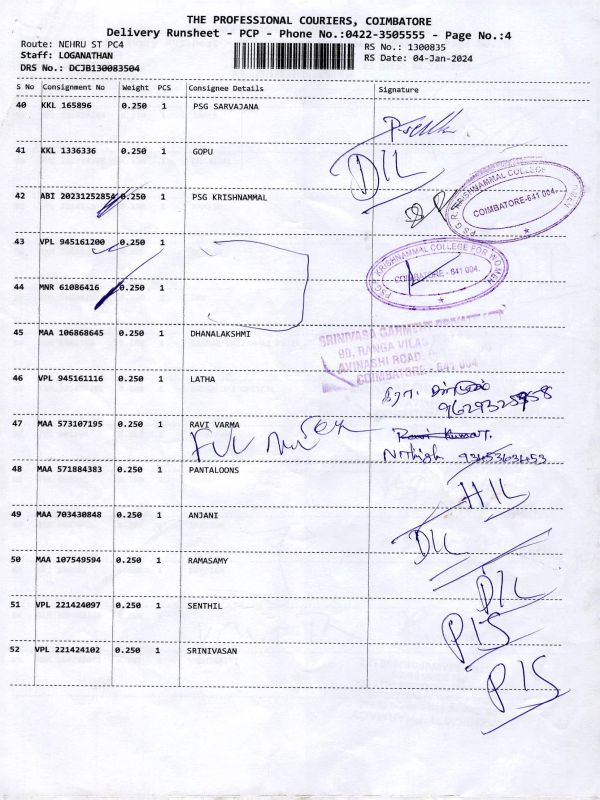 THE PROFESSIONAL COURIERS, COIMBATORE
Delivery Runsheet - PCP - Phone No.:0422-3505555 - Page No.:4
Route: NEHRU ST PC4
RS No.: 1300835
Staff: LOGANATHAN
RS Date: 04-Jan-2024
DRS No.: DCJB130083504
S No Consignment No Weight PCS Consignee Details Signature
40 KKL 165896 0.250 1 PSG SARVAJANA
41 KKL 1336336 0.250 1 GOPU DIL
42 ABI 20231252854 0.250 1 PSG KRISHNAMMAL
PSG.R. KRISHNAMMAL COLLEGE
COIMBATORE-641 004.
43 VPL 945161200 0.250 1
PSG.R. KRISHNAMMAL COLLEGE FOR WOMEN
COIMBATORE - 641 004.
44 MNR 61086416 0.250 1
45 MAA 106868645 0.250 1 DHANALAKSHMI
SRINIVASA GARMENT
99, RANGA VILAS
AVINASHI ROAD,
COIMBATORE - 641 004
46 VPL 945161116 0.250 1 LATHA
47 MAA 573107195 0.250 1 RAVI VARMA
Ravi Kumar.
Nithish 9345363453
48 MAA 571884383 0.250 1 PANTALOONS HIL
49 MAA 703430848 0.250 1 ANJANI DIL
50 MAA 107549594 0.250 1 RAMASAMY DIL
51 VPL 221424097 0.250 1 SENTHIL PIS
52 VPL 221424102 0.250 1 SRINIVASAN PIS